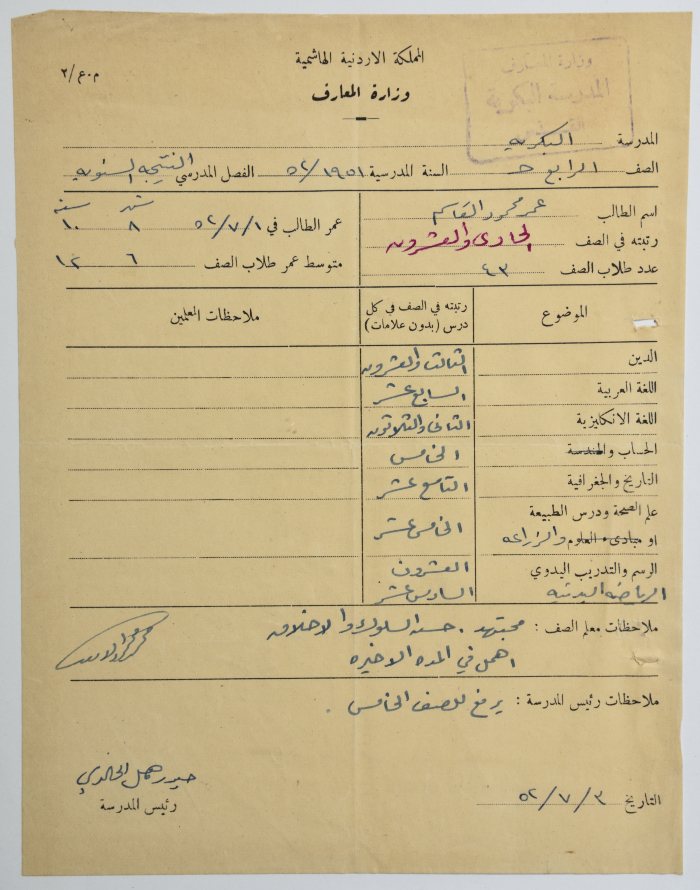 م.ع/٢
المملكة الاردنية الهاشمية
وزارة المعارف
وزارة المعارف
المدرسة البكرية
المدرسة البكريه
الصف الرابع حـ السنة المدرسية ٥٢/١٩٥١ الفصل المدرسي النتيجه السنويه
اسم الطالب عمر محمود القاسم
رتبته في الصف الحادى والعشرون
عدد طلاب الصف ٤٣
شهر سنه
عمر الطالب في ٥٢/٧/١ ٨ ١٠
متوسط عمر طلاب الصف ٦ ١٢
الموضوع
رتبته في الصف في كل درس (بدون علامات)
ملاحظات المعلمين
الدين الثالث والعشرون
اللغة العربية السابع عشر
اللغة الانكليزية الثانى والثلاثون
الحساب والهندسة الخامس
التاريخ والجغرافية التاسع عشر
علم الصحة ودرس الطبيعة
او مبادىء العلوم والزراعه الخامس عشر
الرسم والتدريب اليدوي العشرون
الرياضه البدنيه السادس عشر
ملاحظات معلم الصف : مجتهد . حسن السلوك والاخلاق
اهمل في المده الاخيره
ملاحظات رئيس المدرسة : يرفع للصف الخامس .
رئيس المدرسة
التاريخ ٥٢/٧/٣